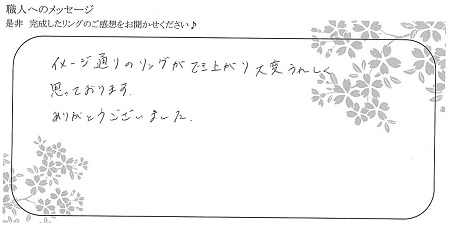 職人へのメッセージ
是非 完成したリングのご感想をお聞かせください♪
イメージ通りのリングができ上がり大変うれしく
思っております.
ありがとうございました.